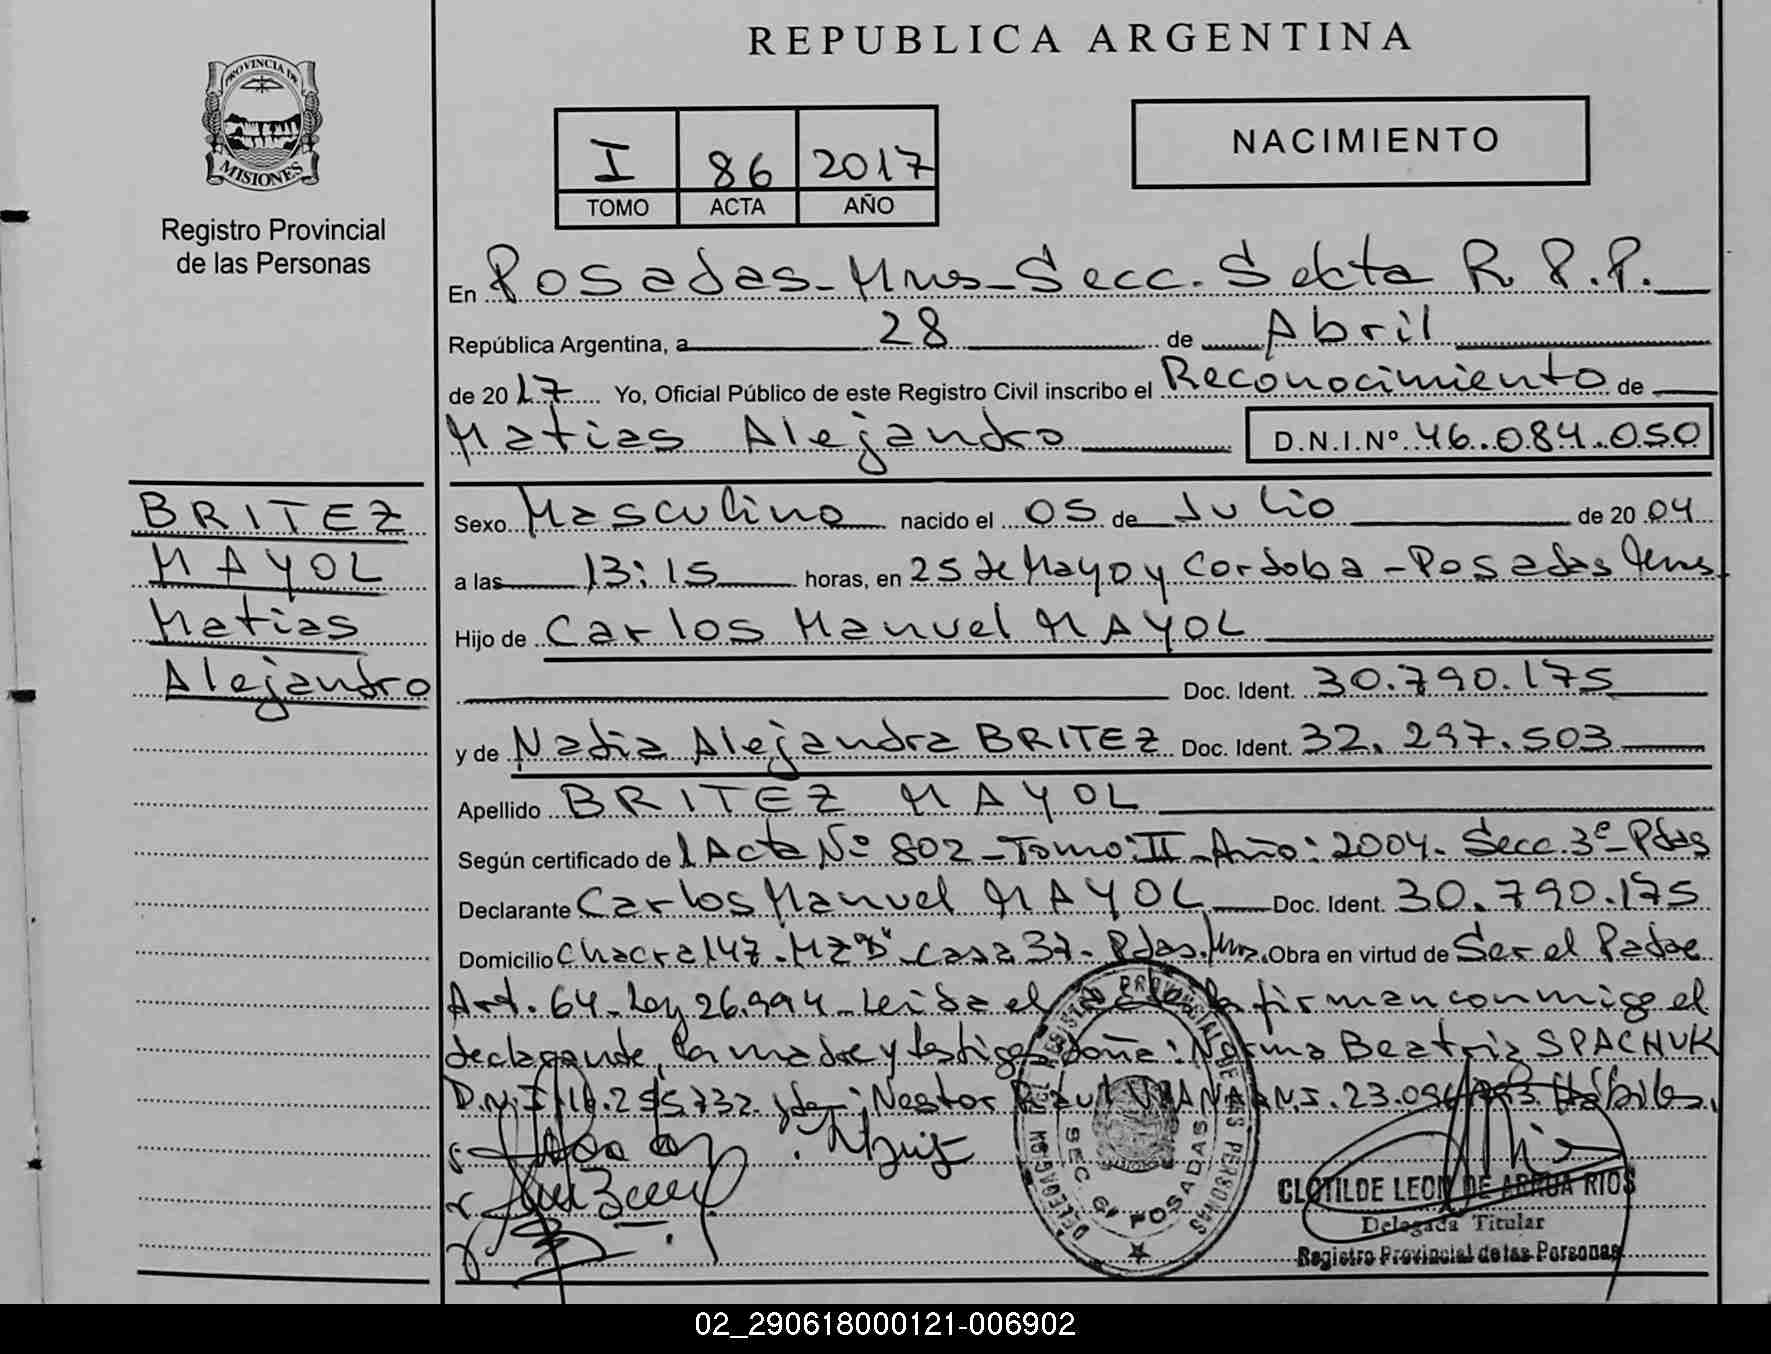 REPUBLICA ARGENTINA
PROVINCIA DE
MISIONES
Registro Provincial
de las Personas
NACIMIENTO
I 86 2017
TOMO ACTA AÑO
En Posadas - Mns - Secc. Sexta R.P.P.
República Argentina, a 28 de Abril
de 2017 Yo, Oficial Público de este Registro Civil inscribo el Reconocimiento de
Matias Alejandro D.N.I.Nº 46.084.050
BRITEZ
MAYOL
Matias
Alejandro
Sexo Masculino nacido el 05 de Julio de 2004
a las 13:15 horas, en 25 de Mayo y Cordoba - Posadas Mns
Hijo de Carlos Manuel MAYOL
Doc. Ident. 30.790.175
y de Nadia Alejandra BRITEZ Doc. Ident. 32.297.503
Apellido BRITEZ MAYOL
Según certificado de Acta Nº 802 - Tomo: II - Año: 2004. Secc. 3º - Pdas
Declarante Carlos Manuel MAYOL Doc. Ident. 30.790.175
Domicilio Chacra 147 - Mz "D" Casa 37 - Pdas. Mns. Obra en virtud de Ser el Padre
Art. 64 - Ley 26.994 - Leida el firman conmigo el
declarante, la madre y testigos doña: Norma Beatriz SPACHUK
D.N.I. Nestor Raul D.N.I. 23. Hábiles.
DELEGACION REGISTRO PROVINCIAL DE LAS PERSONAS
SEC 6ª POSADAS
CLOTILDE LEON DE ARRUA RIOS
Delegada Titular
Registro Provincial de las Personas
02_290618000121-006902